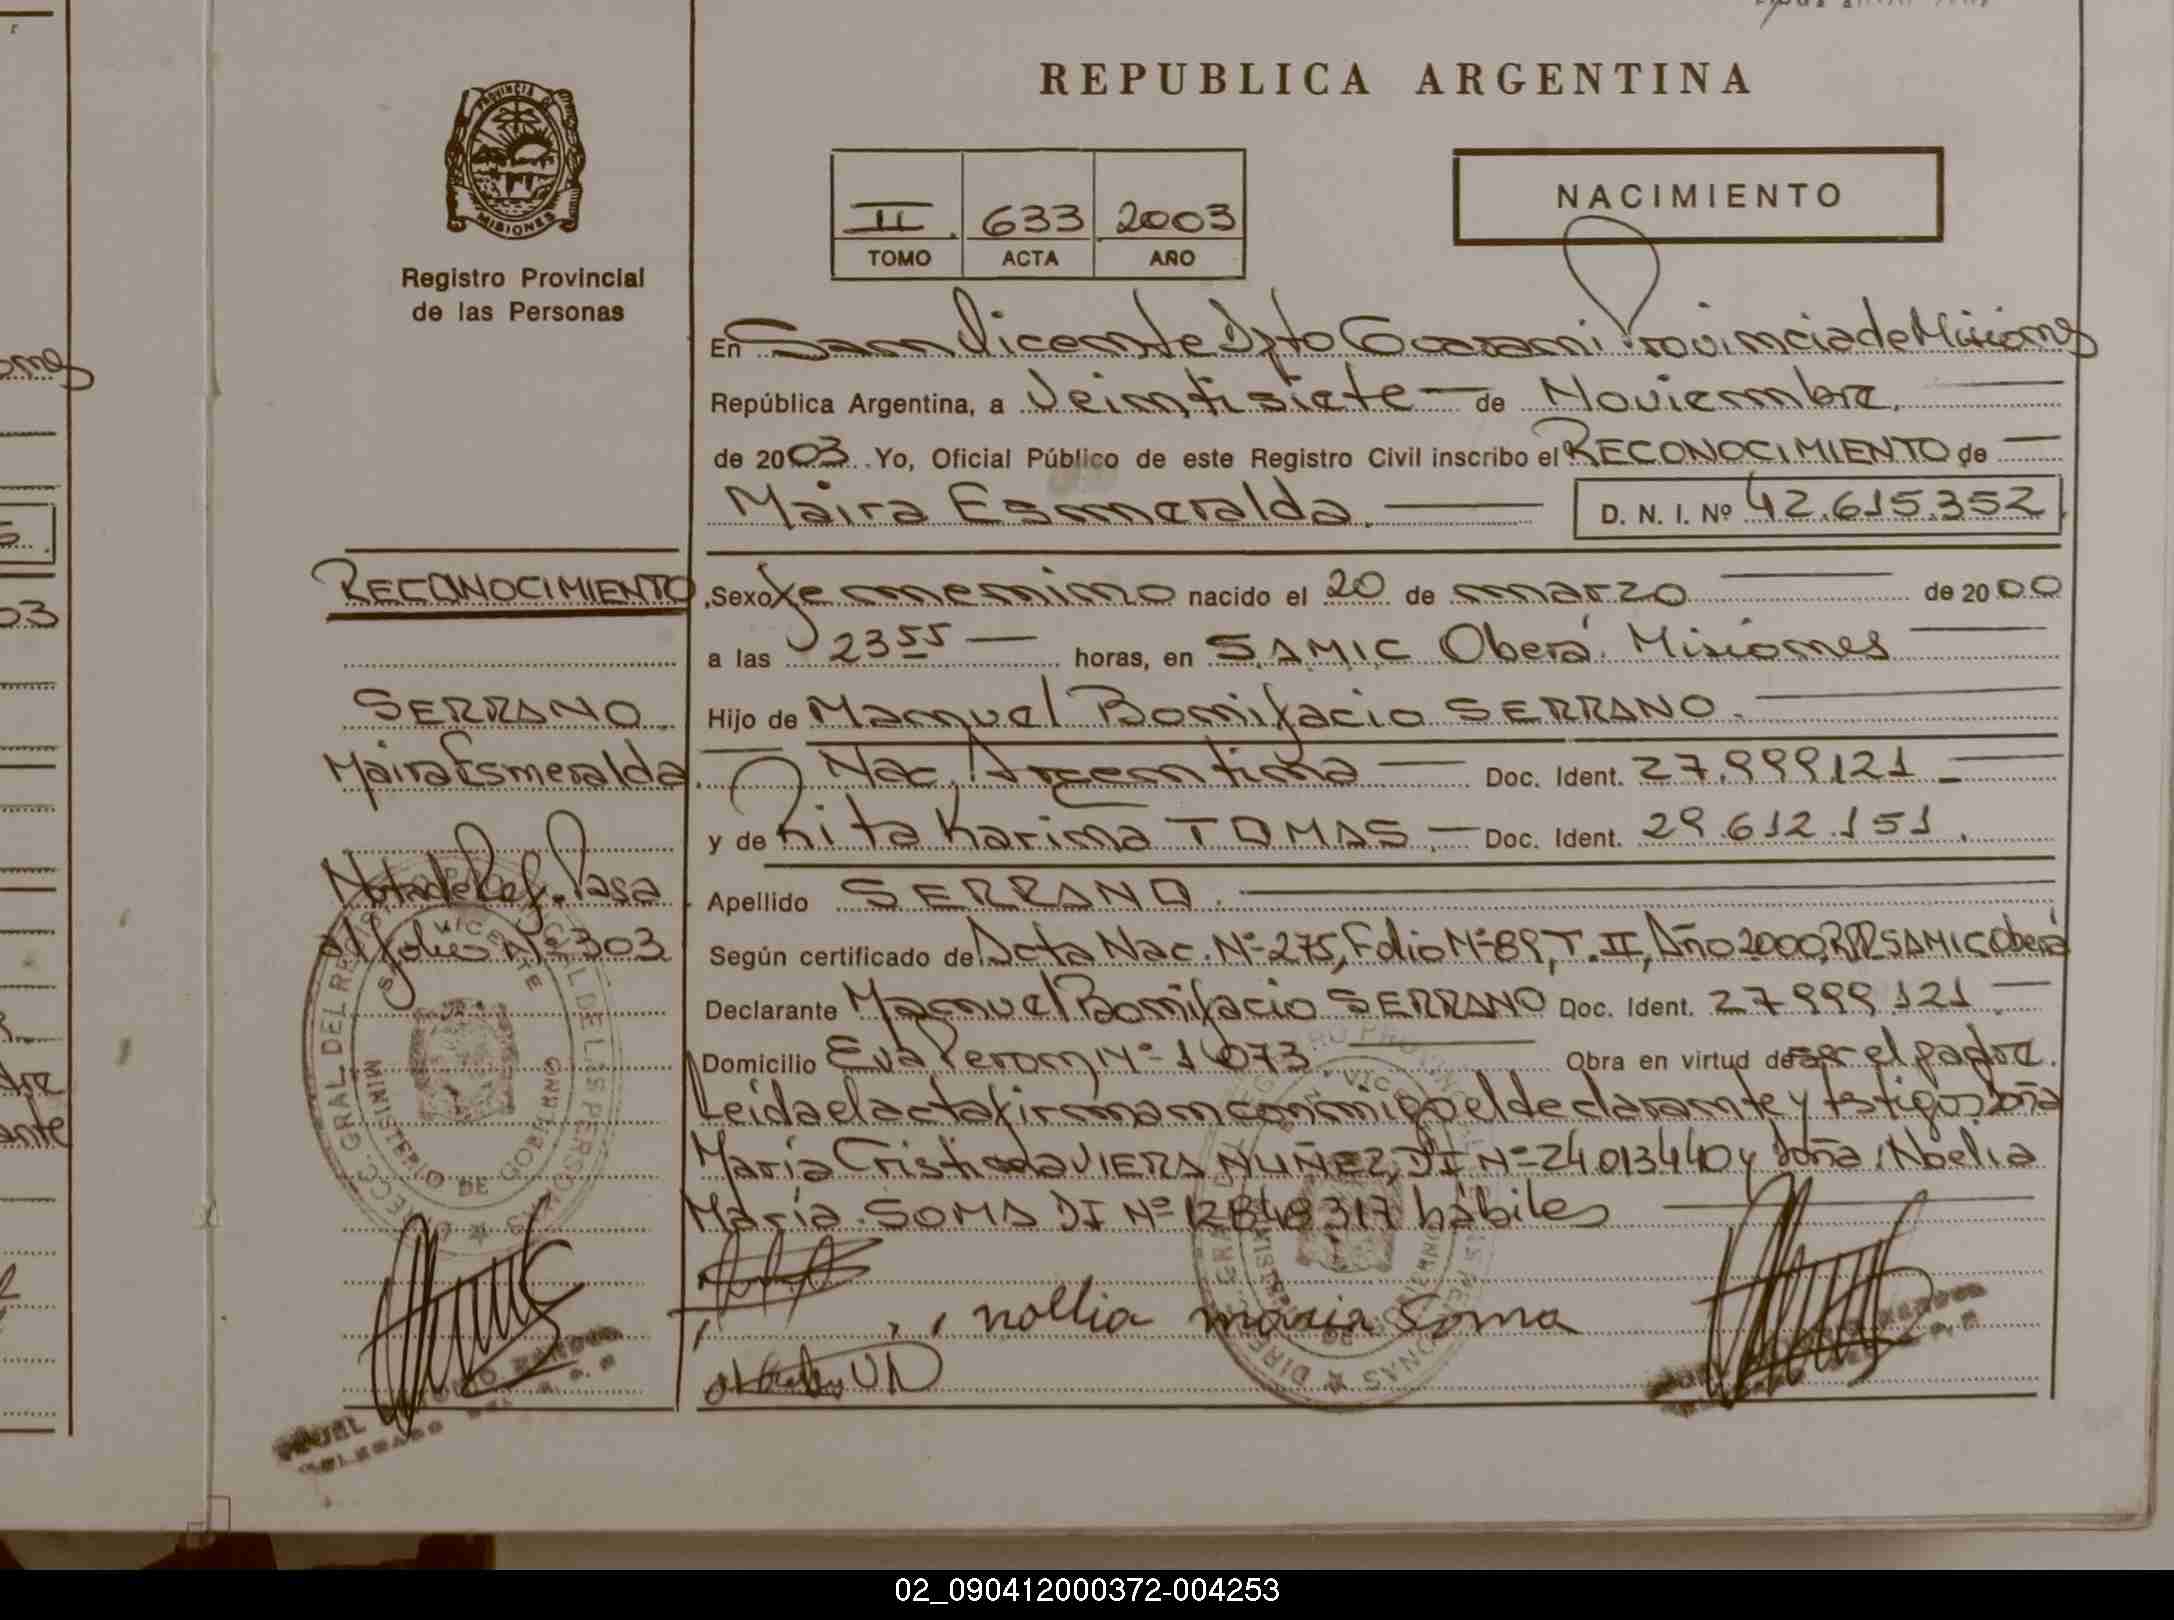 REPUBLICA ARGENTINA
PROVINCIA DE
MISIONES
Registro Provincial
de las Personas
II. 633 2003
TOMO ACTA AÑO
NACIMIENTO
En San Vicente Dpto Guarani Provincia de Misiones
República Argentina, a Veintisiete de Noviembre.
de 2003. Yo, Oficial Público de este Registro Civil inscribo el RECONOCIMIENTO de
Maira Esmeralda. D. N. I. Nº 42.615.352
RECONOCIMIENTO
, Sexo femenino nacido el 20 de marzo de 2000
a las 23 55 horas, en SAMIC Oberá. Misiones
SERRANO.
Hijo de Manuel Bonifacio SERRANO.
Maira Esmeralda.
Nac. Argentina Doc. Ident. 27.999.121
y de Rita Karina TOMAS. Doc. Ident. 29.612.151.
Nota de Ref. Pasa
al folio Nº 303
Apellido SERRANO.
Según certificado de Acta Nac. Nº 275, Folio Nº 89, T. II, Año 2000, RPP SAMIC, Oberá
Declarante Manuel Bonifacio SERRANO Doc. Ident. 27.999.121
Domicilio Eva Peron Nº 1073. Obra en virtud de ser el padre.
Leida el acta firman conmigo el declarante y testigos Doña
María Cristina VIERA NUÑEZ, DI Nº 24013440 y doña Noelia
María SOMA DI Nº 12848317 hábiles
nollia maria Soma
02_090412000372-004253